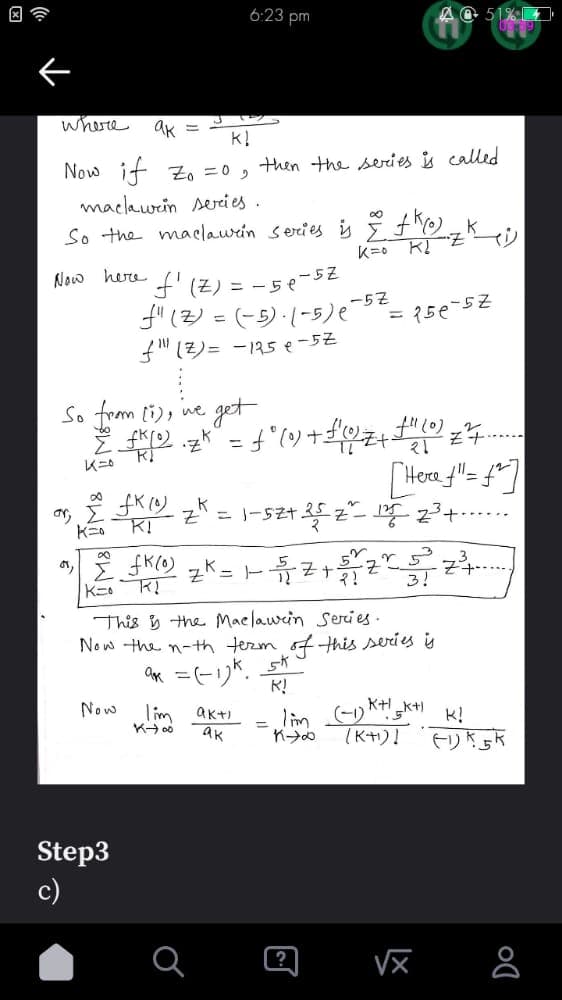 6:23 pm
51%
where aₖ = / K!
Now if Z₀ = 0, then the series is called
maclaurin series.
So the maclaurin series is ∞ Σ K=0 fᵏ(0)/K! · Zᵏ —(i)
Now here f'(Z) = -5e^-5Z
f''(Z) = (-5)·(-5)e^-5Z = 25e^-5Z
f'''(Z) = -125 e^-5Z
So from (i), we get
∞ Σ K=0 fᵏ(0)/K! · Zᵏ = f°(0) + f'(0)/1! Z + f''(0)/2! Z² + ......
[Here f'' = f²]
or, ∞ Σ K=0 fᵏ(0)/K! Zᵏ = 1-5Z + 25/2 Z² - 125/6 Z³ + ......
or, ∞ Σ K=0 fᵏ(0)/K! Zᵏ = 1 - 5/1! Z + 5²/2! Z² - 5³/3! Z³ + ......
This is the Maclaurin Series.
Now the n-th term of this series is
aₖ = (-1)ᵏ · 5ᵏ/K!
Now lim K→∞ aₖ₊₁/aₖ = lim K→∞ (-1)ᵏ⁺¹ 5ᵏ⁺¹/(K+1)! · K!/(-1)ᵏ·5ᵏ
Step3
c)